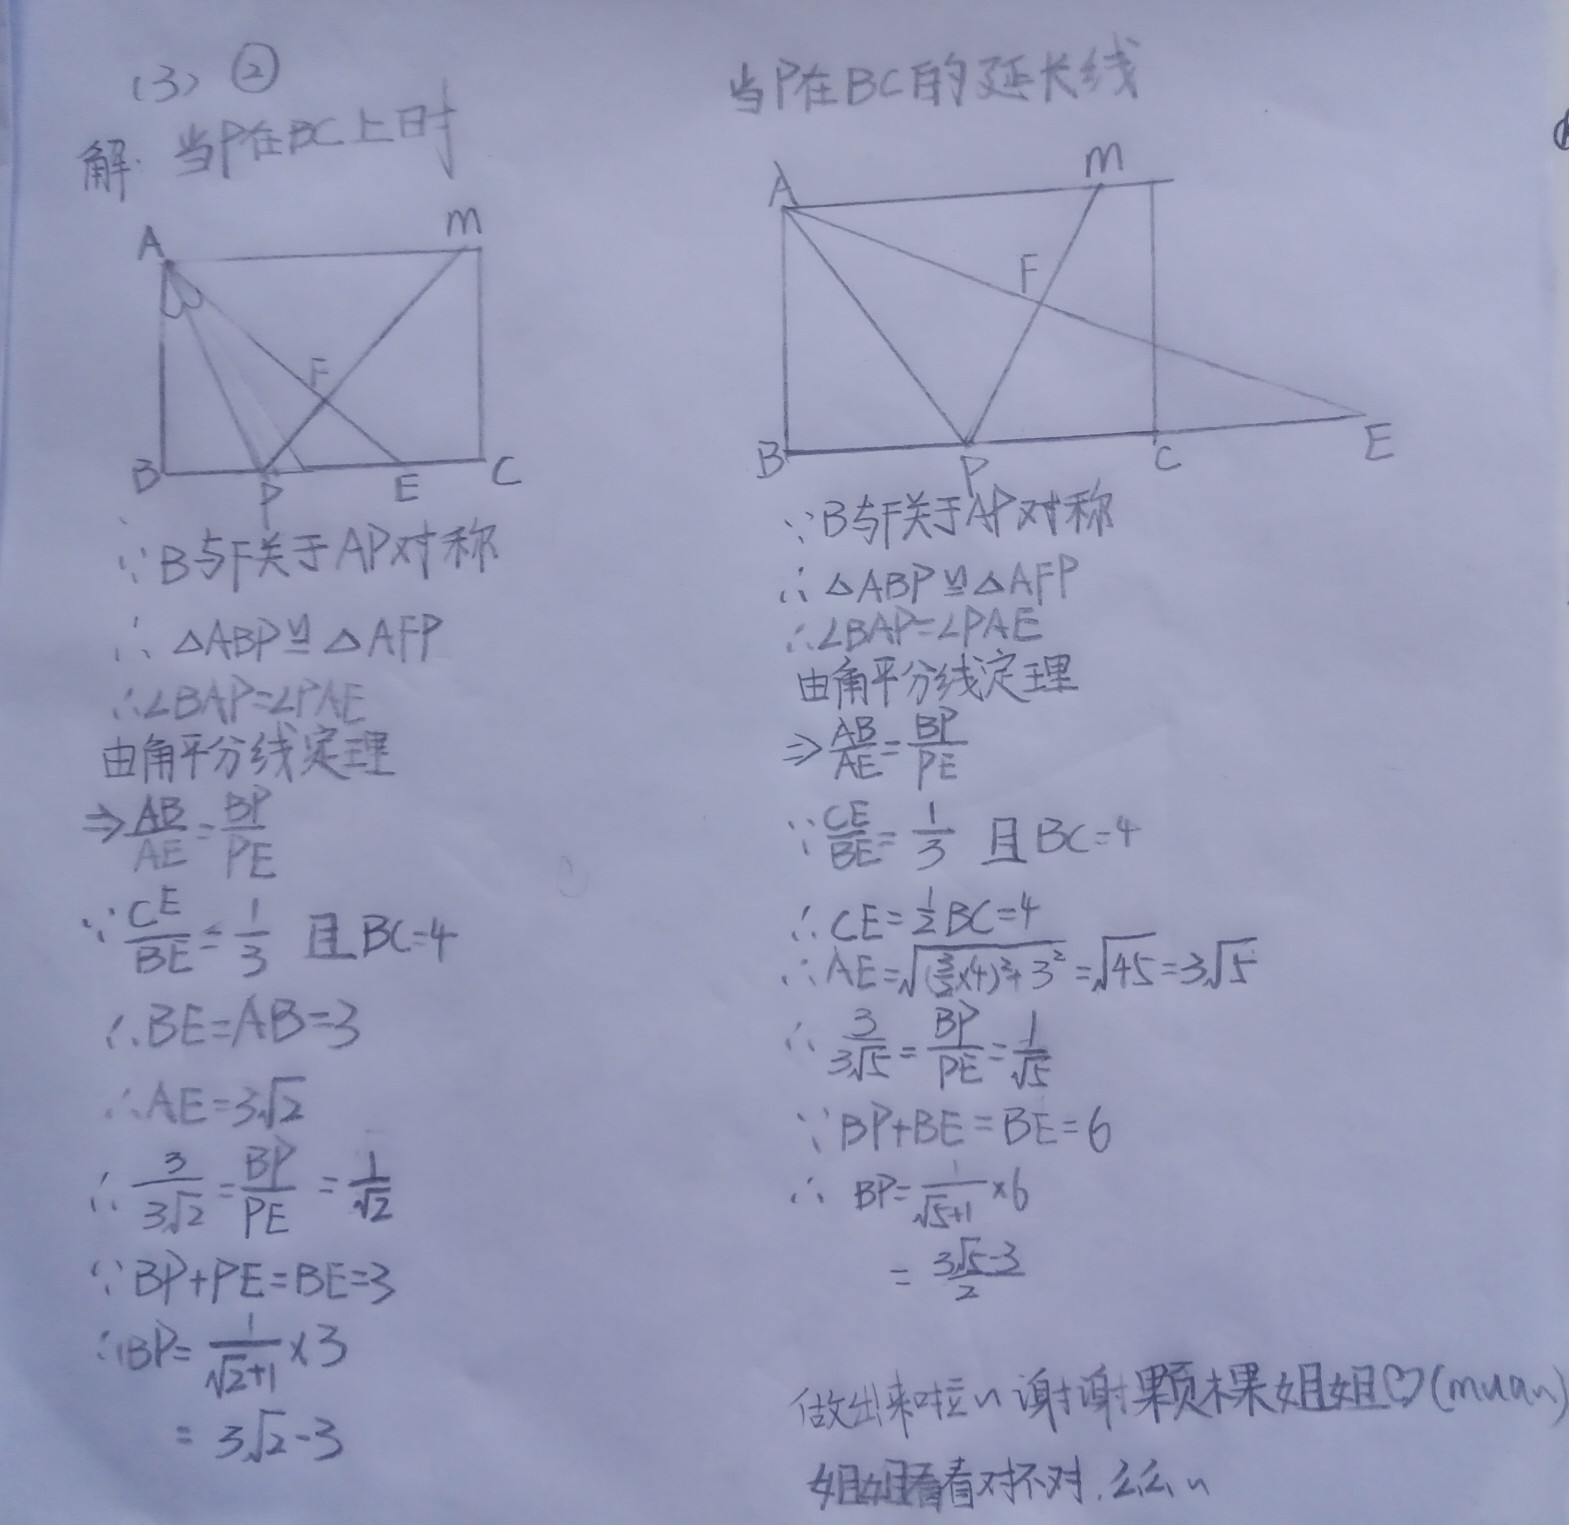 (3) ②
解: 当P在BC上时
A
M
F
B
P
E
C
∵B与F关于AP对称
∴ △ABP≌△AFP
∴∠BAP=∠PAE
由角平分线定理
⇒AB/AE=BP/PE
∵CE/BE=1/3 且BC=4
∴BE=AB=3
∴AE=3√2
∴3/3√2=BP/PE=1/√2
∵BP+PE=BE=3
∴BP=1/√2+1×3
=3√2-3
当P在BC的延长线
A
M
F
B
P
C
E
∵B与F关于AP对称
∴△ABP≌△AFP
∴∠BAP=∠PAE
由角平分线定理
⇒AB/AE=BP/PE
∵CE/BE=1/3 且BC=4
∴CE=1/2BC=4
∴AE=√(3/2×4)²+3²=√45=3√5
∴3/3√5=BP/PE=1/√5
∵BP+BE=BE=6
∴BP=1/√5+1×6
=3√5-3/2
做出来啦~谢谢颗棵姐姐♡(mua~)
姐姐看看对不对.么么~